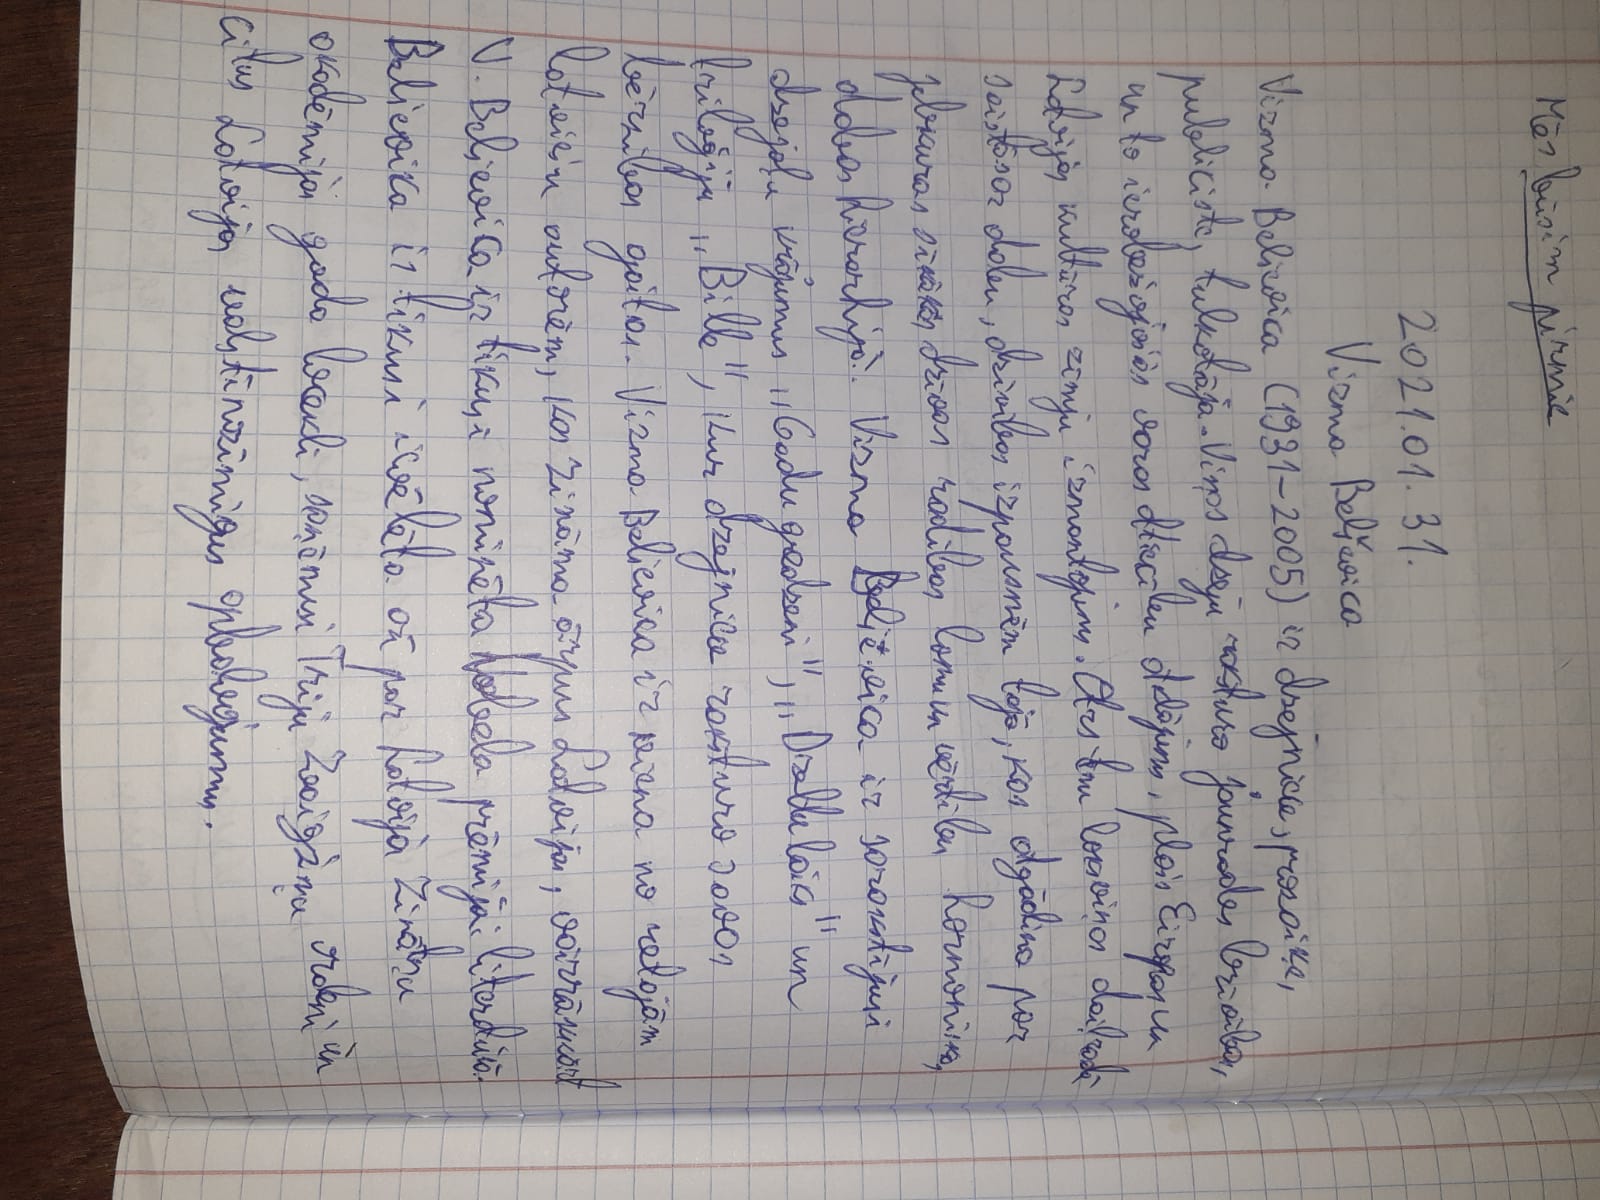 Mēs būsim pirmie
2021.01.31.
Vizma Belševica
Vizma Belševica (1931–2005) ir dzejniece, prozaiķe,
publiciste, tulkotāja. Viņas dzeju raksturo jaunrades brīvības,
un to ierobežojošās varas attiecību atklājums, plašs Eiropas un
Latvijas kultūras zīmju izmantojums. Otrs tēmu loks viņas daiļradē
saistās ar dabu, dzīvības izpausmēm tajā, kas atgādina par
jebkuras sīkākās dzīvas radības lomu un vērtību harmoniskā,
dabas hierarhijā. Vizma Belševica ir sarakstījusi
dzejoļu krājumus „Gadu gredzeni", „Dzeltu laiks" un
triloģiju „Bille", kur dzejniece raksturo savas
bērnības gaitas. Vizma Belševica ir viena no retajām
latviešu autorēm, kas zināma ārpus Latvijas, vairrākkārt
V. Belševica ir tikusi nominēta Nobela prēmijai literatūrā.
Belševika ir tikusi ievēlēta arī par Latvijā Zinātņu
akadēmijas goda locekli, saņēmusi Triju Zvaigžņu ordeni un
citus Latvijas valstīnozīmīgus apbalvojumus.